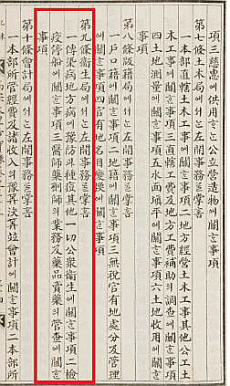 項三慈惠에供用ᄒᆞᄂᆞᆫ公立營造物에關ᄒᆞᆫ事項
第七條土木局에셔ᄂᆞᆫ左開事務ᄅᆞᆯ掌ᄒᆞᆷ
一本部直轄土木工事에關ᄒᆞᆫ事項二地方經營土木工事其他公共土
木工事에關ᄒᆞᆫ事項三直轄工費及地方工費補助의調查에關ᄒᆞᆫ事項
四土地測量에關ᄒᆞᆫ事項五水面塡平에關ᄒᆞᆫ事項六土地收用에關ᄒᆞᆫ
事項
第八條版籍局에셔ᄂᆞᆫ左開事務ᄅᆞᆯ掌ᄒᆞᆷ
一戶口籍에關ᄒᆞᆫ事項二地籍에關ᄒᆞᆫ事項三無稅官有地處分及管理
에關ᄒᆞᆫ事項四官有地名目變換에關ᄒᆞᆫ事項
第九條衛生局에셔ᄂᆞᆫ左開事務ᄅᆞᆯ掌ᄒᆞᆷ
一傳染病地方病의豫防과種痘其他一切公衆衛生에關ᄒᆞᆫ事項二檢
疫停船에關ᄒᆞᆫ事項三醫師藥劑師의業務及藥品賣藥의管查에關ᄒᆞᆫ
事項
第十條會計局에셔ᄂᆞᆫ左開事務ᄅᆞᆯ掌ᄒᆞᆷ
一本部所管經費及諸收入의豫算決算並會計에關ᄒᆞᆫ事項二本部所